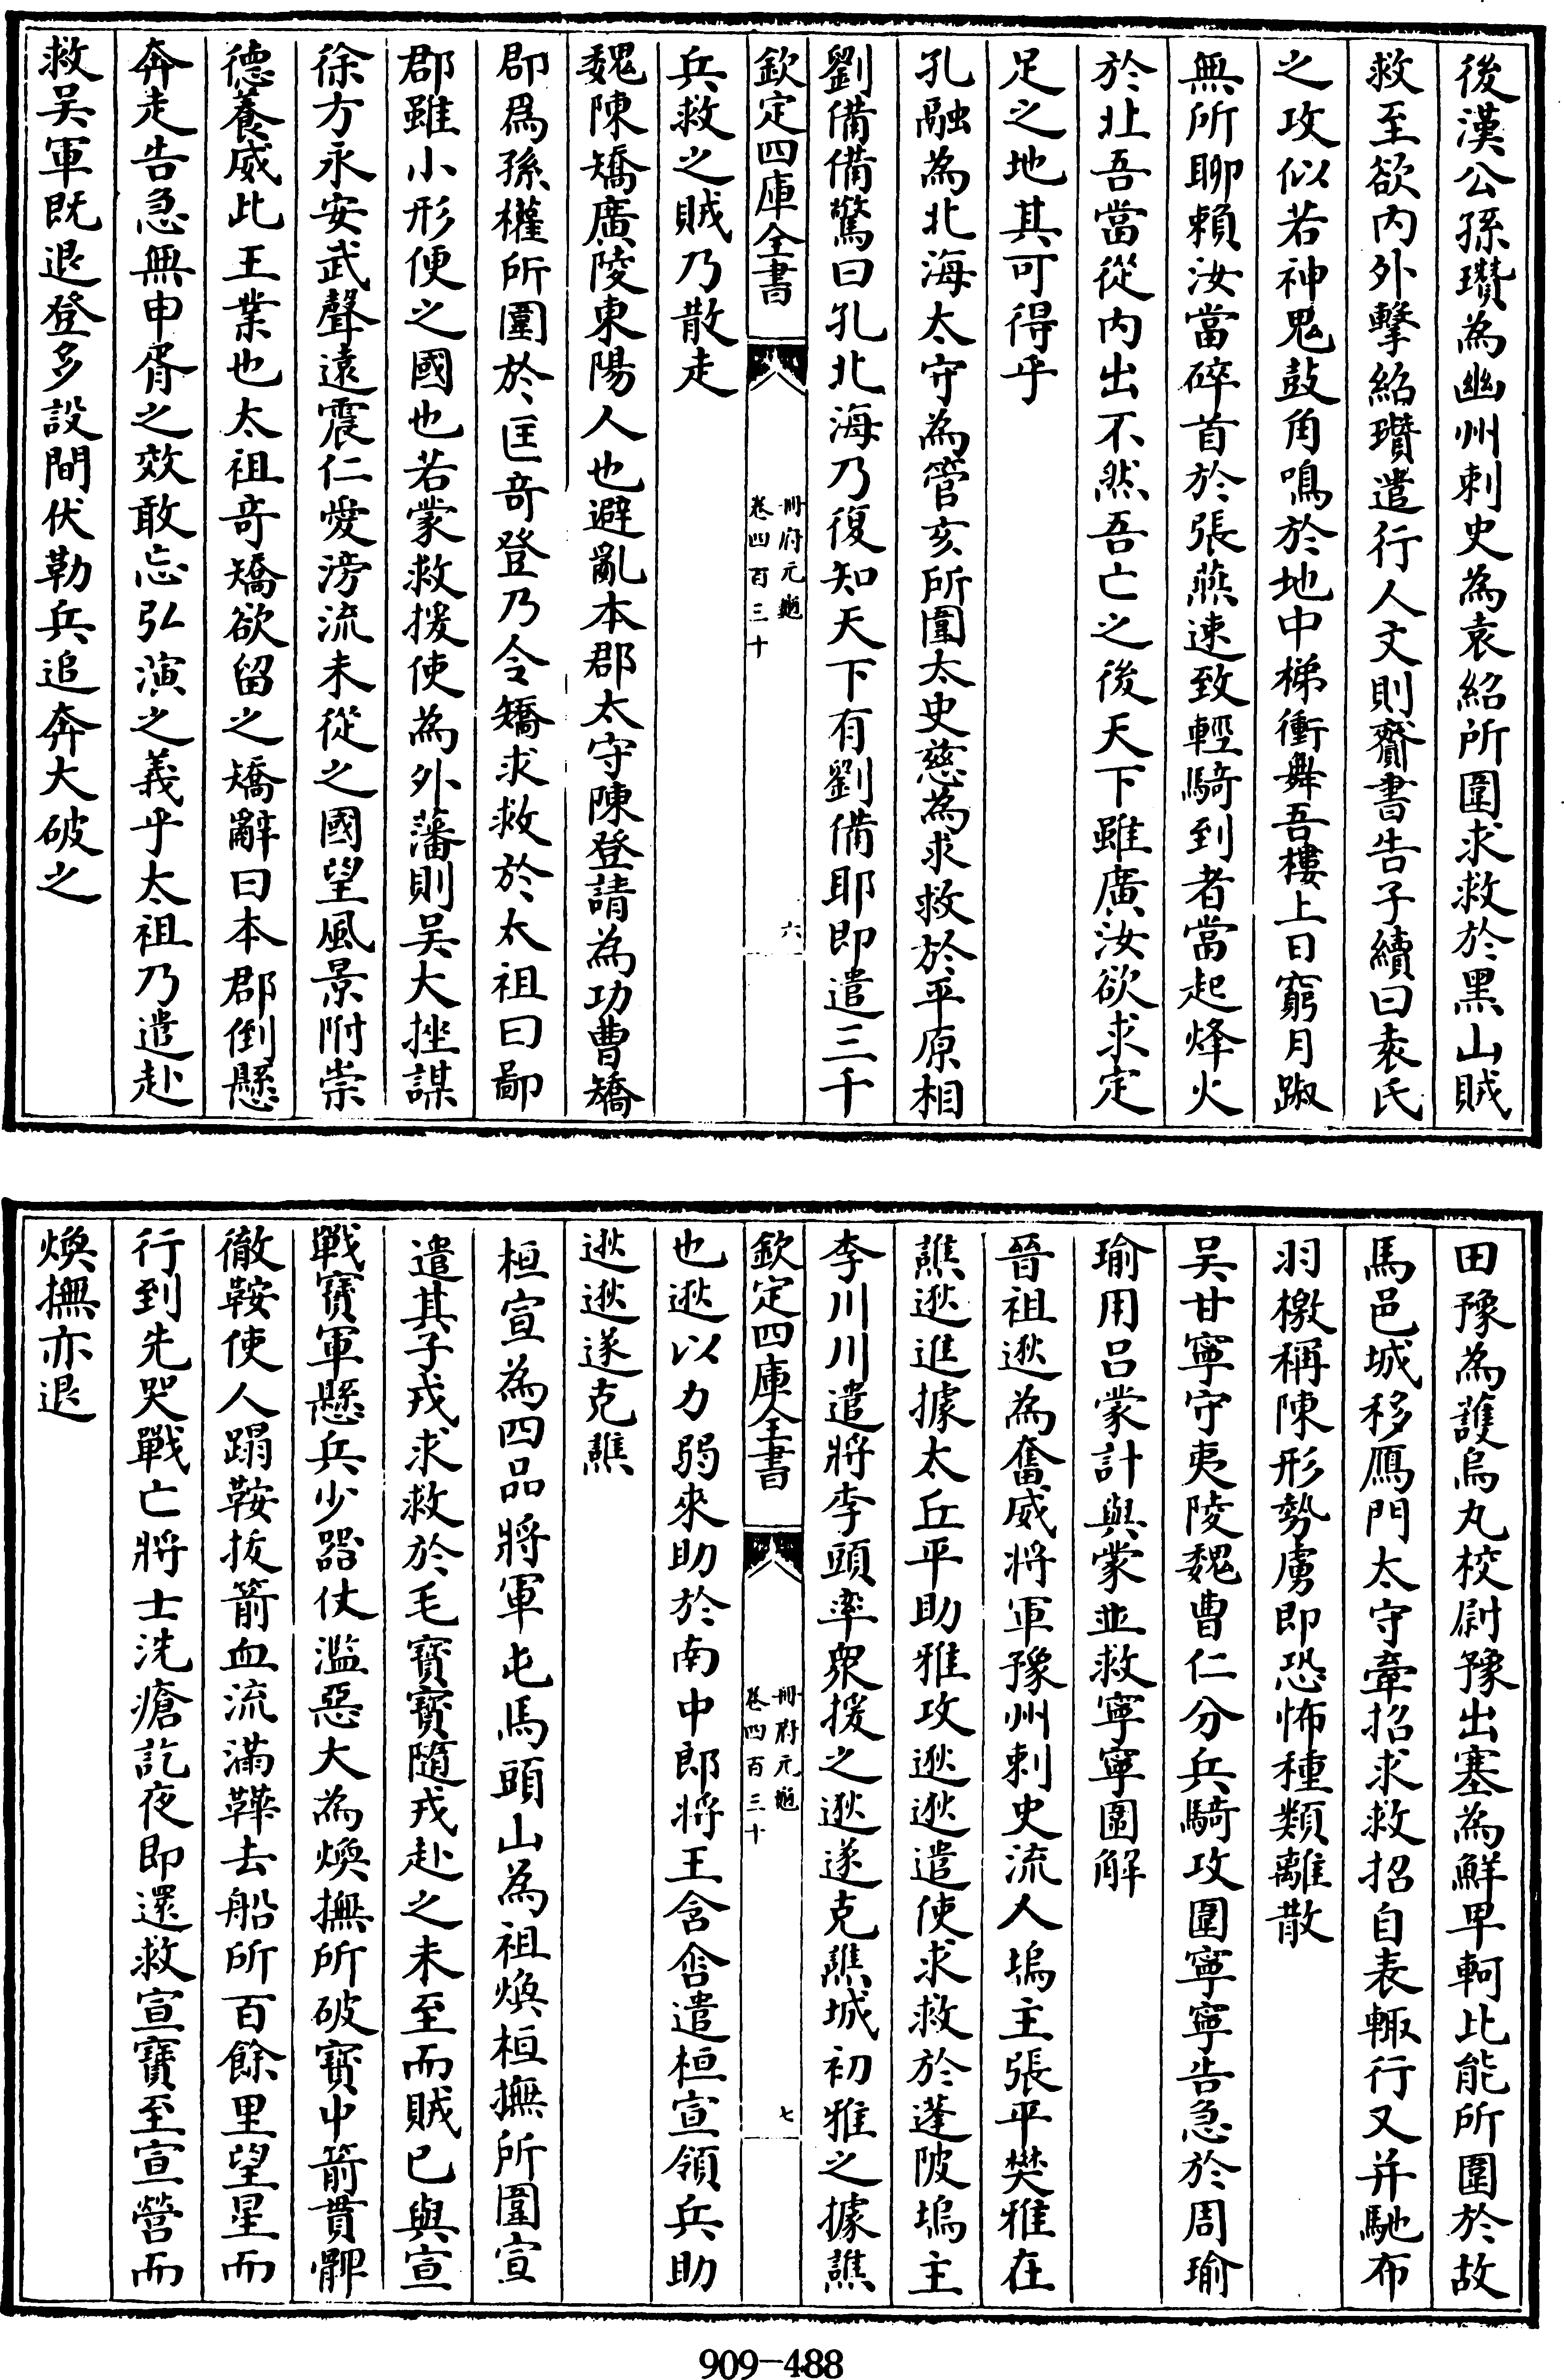 後漢公孫瓚為幽州刺史為袁紹所圍求救於黑山賊
救至欲内外擊紹瓚遣行人文則齎書告子續曰袁氏
之攻似若神鬼鼓角鳴於地中梯衝舞吾樓上日窮月踧
無所聊賴汝當碎首於張燕速致輕騎到者當起烽火
於北吾當從内出不然吾亡之後天下雖廣汝欲求定
足之地其可得乎
孔融為北海太守為管亥所圍太史慈為求救於平原相
劉備備驚曰孔北海乃復知天下有劉備耶即遣三千
欽定四庫全書
冊府元龜
卷四百三十
六
兵救之賊乃散走
魏陳矯廣陵東陽人也避亂本郡太守陳登請為功曹矯
郡爲孫權所圍於匡竒登乃令矯求救於太祖曰鄙
郡雖小形便之國也若蒙救援使為外藩則吳大挫謀
徐方永安武聲遠震仁愛滂流未從之國望風景附崇
德養威此王業也太祖竒矯欲留之矯辭曰本郡倒懸
奔走告急無申胥之效敢忘弘演之義乎太祖乃遣赴
救吳軍既退登多設間伏勒兵追奔大破之
田豫為護烏丸校尉豫出塞為鮮卑軻比能所圍於故
馬邑城移鴈門太守牽招求救招自表輙行又并馳布
羽檄稱陳形勢虜即恐怖種類離散
吳甘寧守夷陵魏曹仁分兵騎攻圍寧寧告急於周瑜
瑜用呂蒙計與蒙並救寧寧圍解
晉祖逖為奮威將軍豫州刺史流人塢主張平樊雅在
譙逖進據太丘平助雅攻逖逖遣使求救於蓬陂塢主
李川川遣將李頭率衆援之逖遂克譙城初雅之據譙
欽定四庫全書
冊府元龜
卷四百三十
七
也逖以力弱來助於南中郎將王含含遣桓宣領兵助
逖逖遂克譙
桓宣為四品將軍屯馬頭山為祖煥桓撫所圍宣
遣其子戎求救於毛寳寳隨戎赴之未至而賊已與宣
戰寳軍懸兵少器仗濫惡大為煥撫所破寳中箭貫髀
徹鞍使人蹋鞍拔箭血流滿鞾去船所百餘里望星而
行到先哭戰亡將士洗瘡訖夜即還救宣寳至宣營而
煥撫亦退
909-488